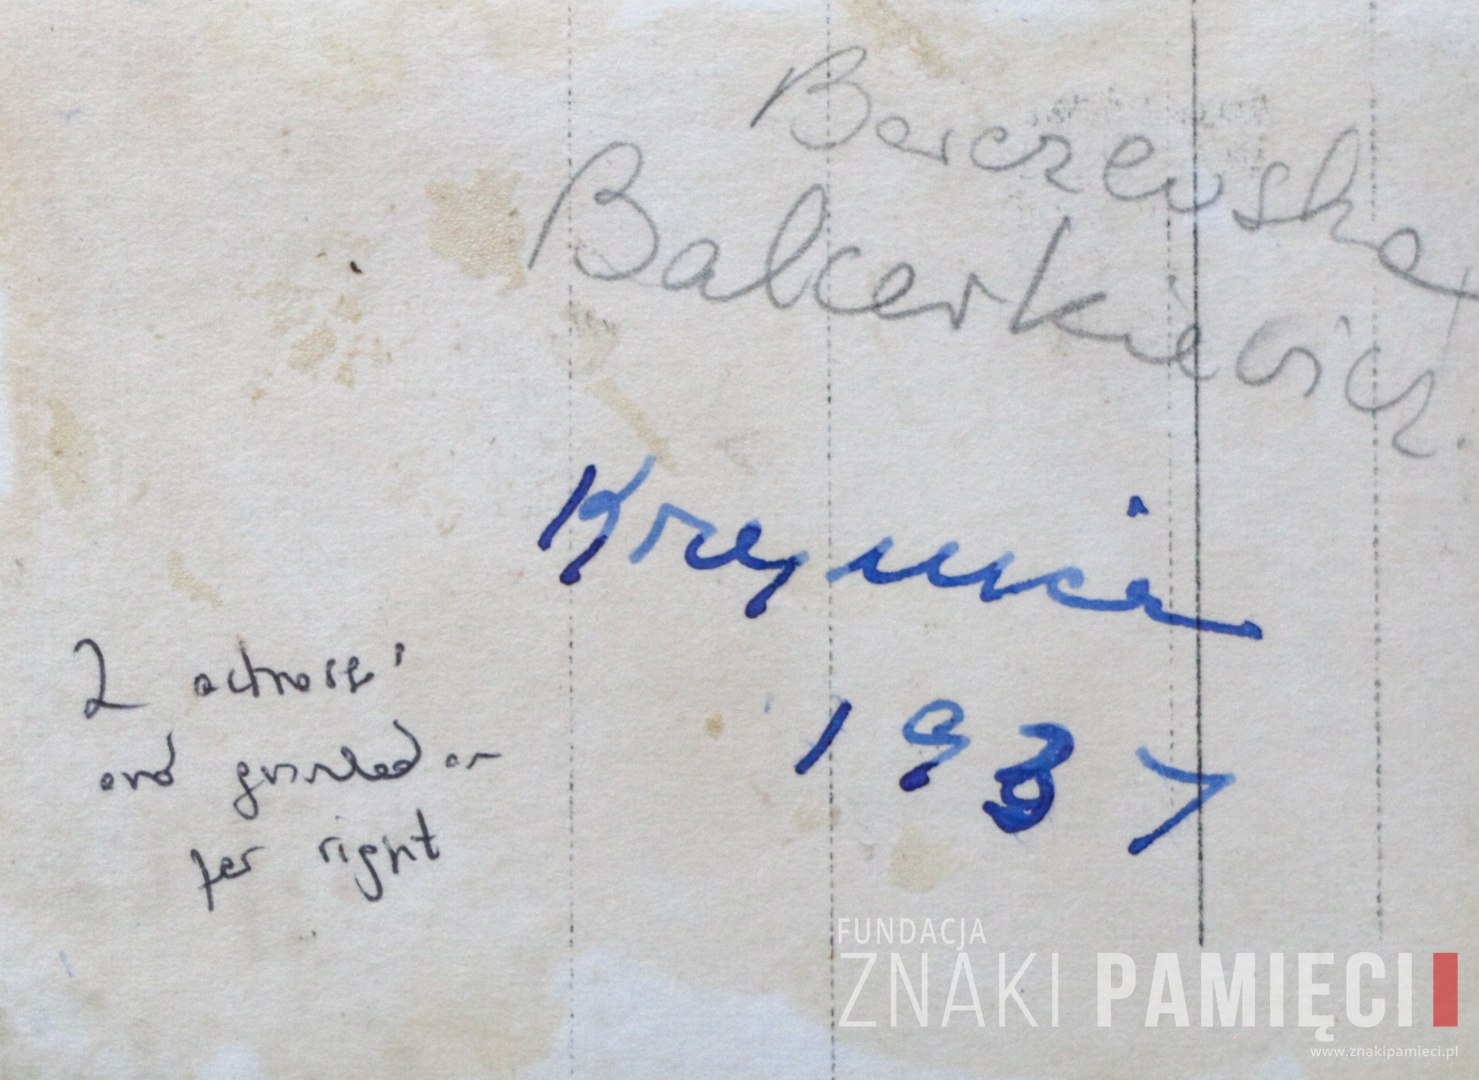 Barczewska
Balcerkiewicz.
Krynica
1937
2 actress'
and
far right
FUNDACJA
ZNAKI PAMIĘCI
www.znakipamieci.pl